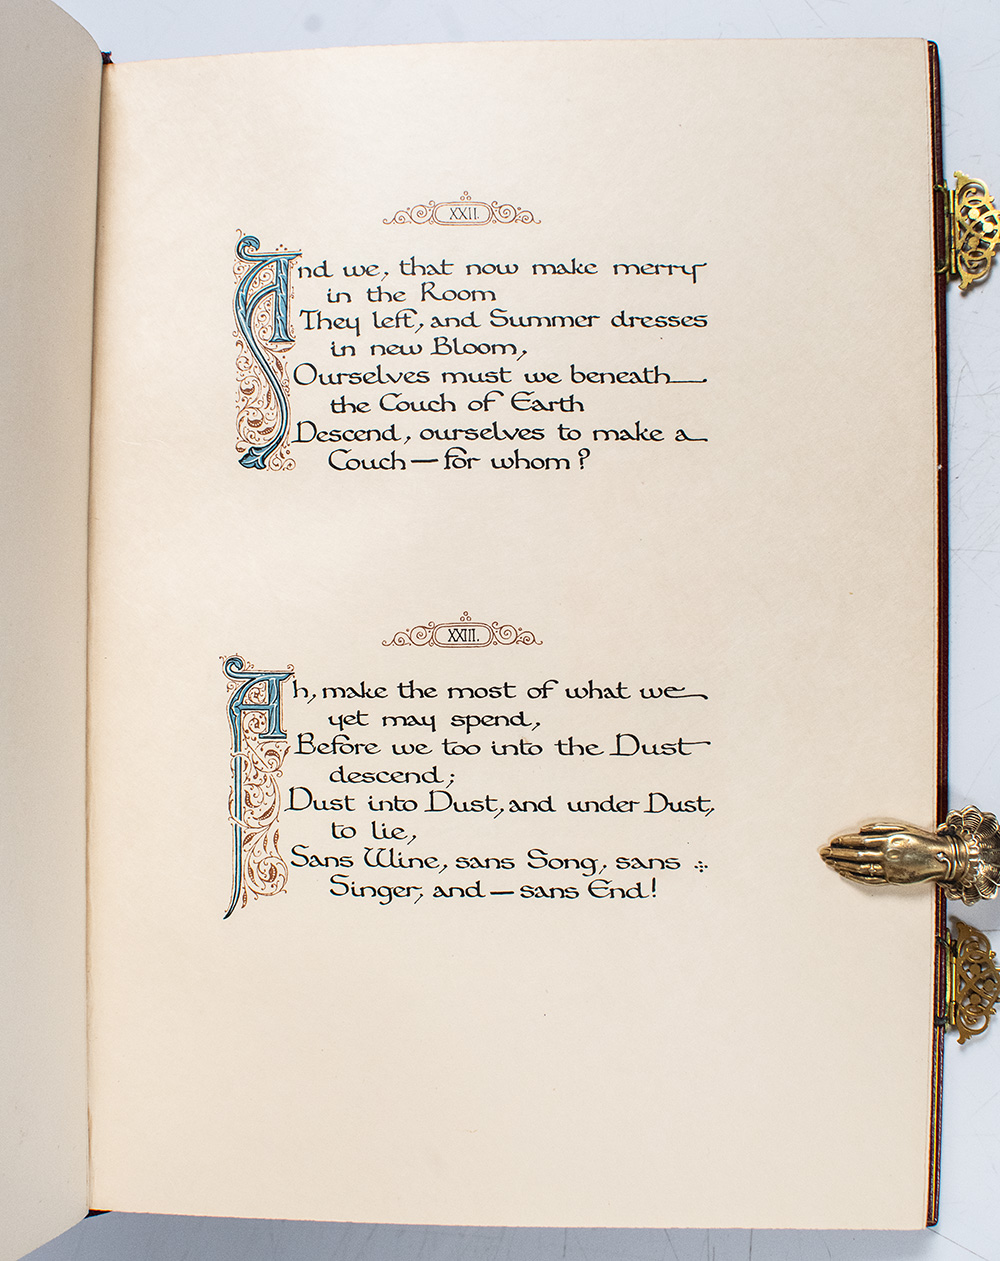 XXII.
And we, that now make merry
in the Room
They left, and Summer dresses
in new Bloom,
Ourselves must we beneath
the Couch of Earth
Descend, ourselves to make a
Couch — for whom?
XXIII.
Ah, make the most of what we
yet may spend,
Before we too into the Dust
descend;
Dust into Dust, and under Dust,
to lie,
Sans Wine, sans Song, sans
Singer, and — sans End!